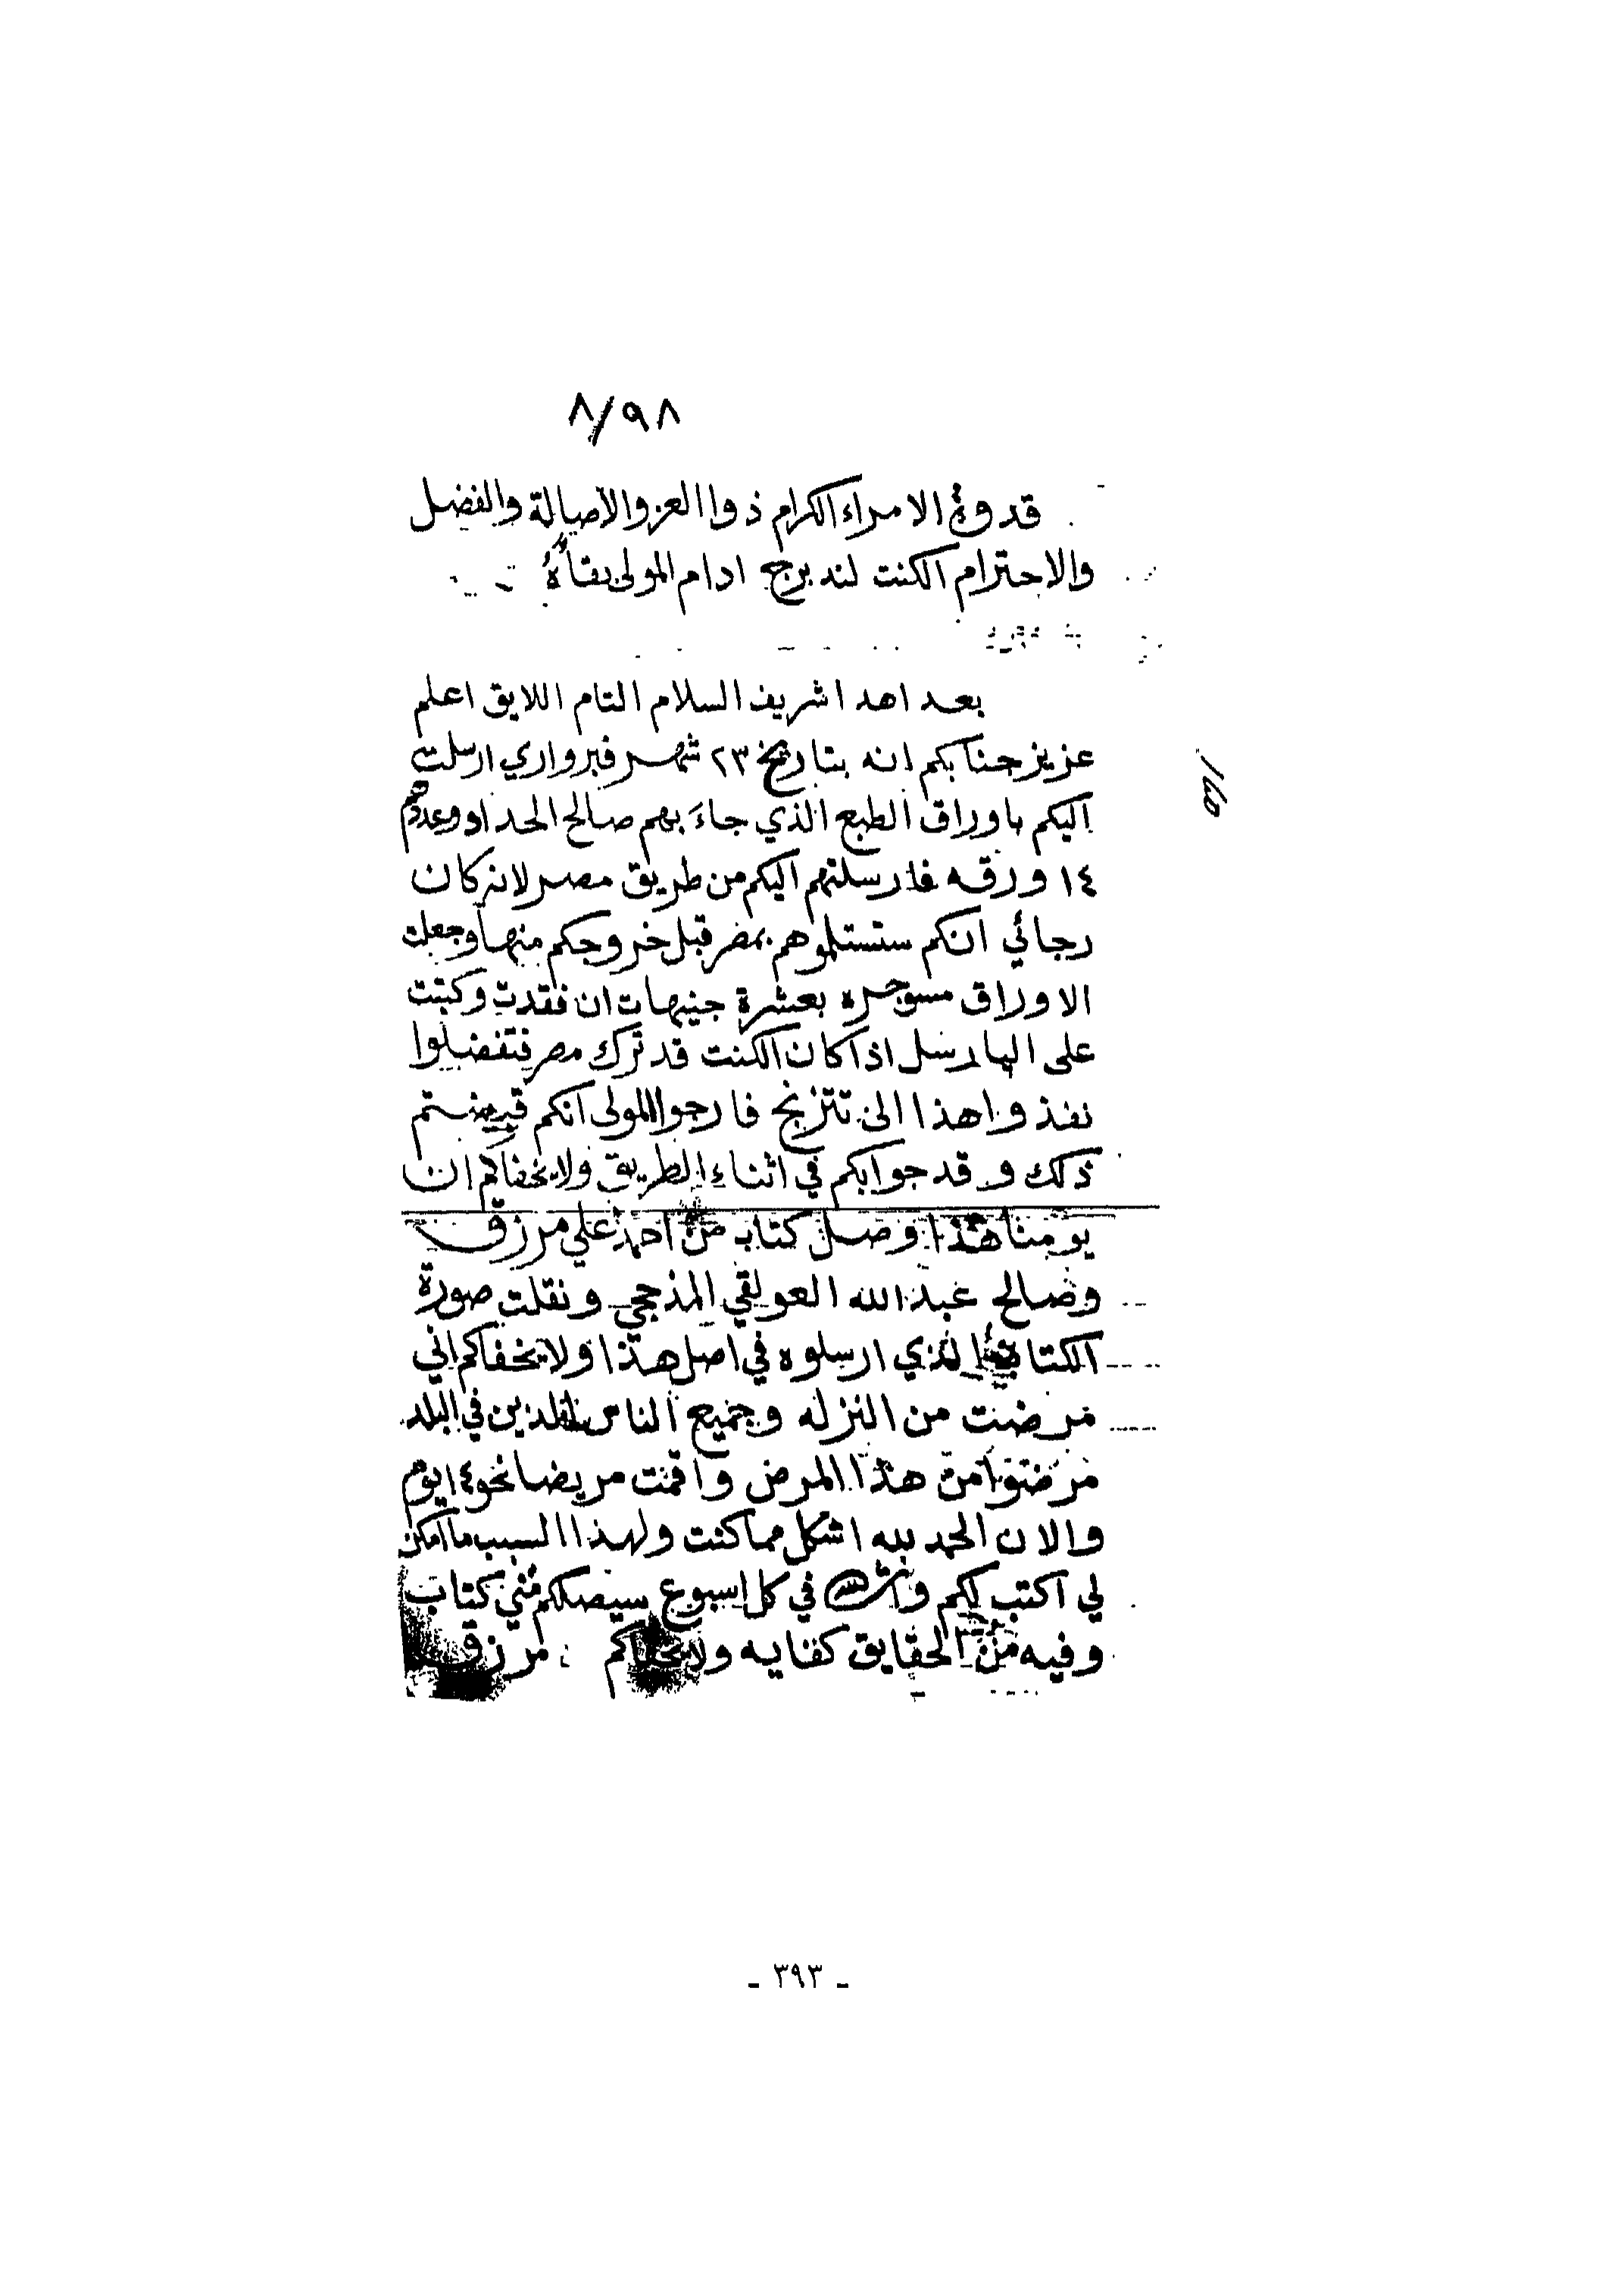 ٨/٩٨
قدوة الامراء الكرام ذوا العز والأصالة والفضل
والاحترام الكنت لندبرج ادام المولى بقاؤه
بعد اهدا شريف السلام التام اللايق اعلم
عزيز جنابكم انه بتاريخ ٢٣ شهر فبرواري ارسلت
اليكم باوراق الطبع الذي جاءَ بهم صالح الحداد وعددهم
١٤ ورقه فارسلتهم اليكم من طريق مصر لانه كان
رجائي انكم ستستلموهم بمصر قبل خروجكم منها وجعلت
الاوراق مسوجره بعشرة جنيهات ان فقدت وكتبت
على البارسل اذا كان الكنت قد ترك مصر فتفضلوا
نفذوا هذا الى تتزنج فارجوا المولى انكم قبضتم
ذلك وقد جوابكم في اثناء الطريق ولا يخفاكم ان
يومنا هذا وصل كتاب من احمد علي مرزق
وصالح عبد الله العولقي المذحجي ونقلت صورة
الكتاب الذي ارسلوه في اصل هذا ولا يخفاكم اني
مرضت من النزله وجميع الناس الذين في البلد
مرضوا من هذا المرض واقمت مريضا نحو ١٤ يوم
والان الحمد لله اشكل مما كنت ولهذا السبب ما امكن
لي اكتب لكم وانشالله في كل اسبوع سيصلكم مني كتاب
وفيه من الحقايق كفايه ولا يخفاكم مرزق
- ٣٩٣ -